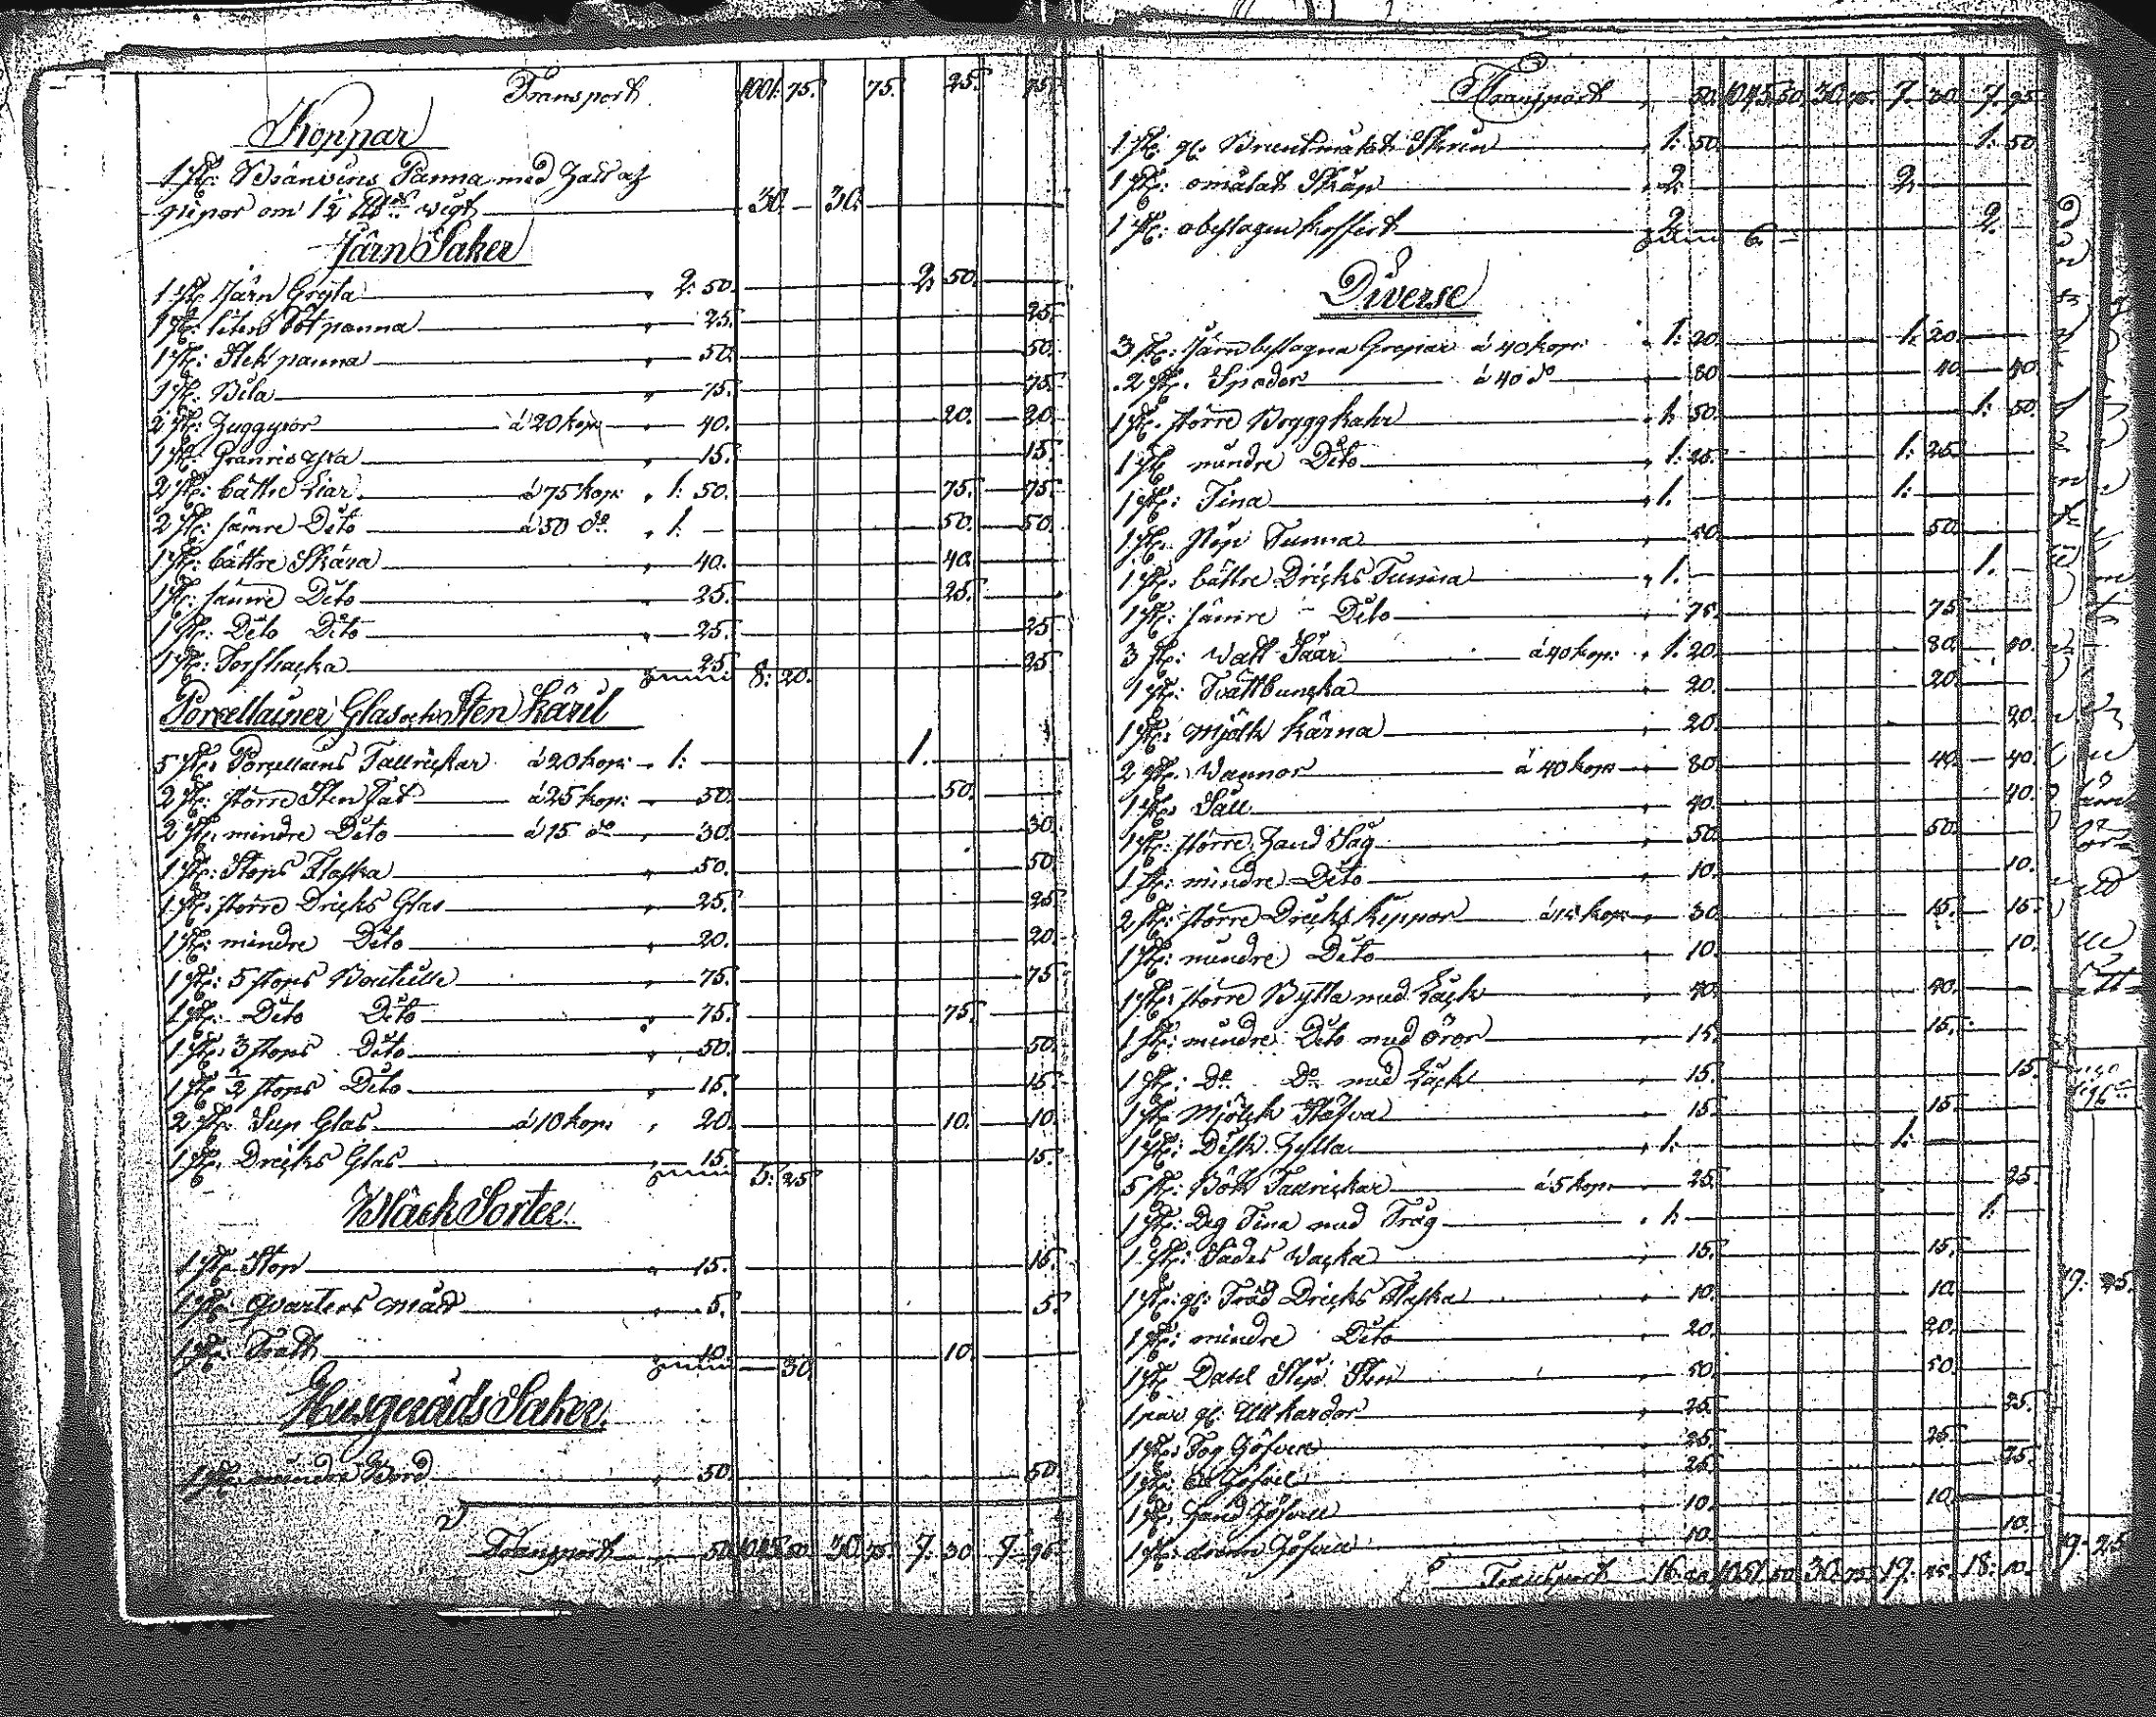 Transport 1001. 75. 75. 25. 75.
Koppar
1 St: Bränvins Panna med Hatt och
pipor om 1½ wigt 30. — 30.
Järn Saker
1 St: Järn Gryta 2: 50. 2. 50.
1 St: liten Sot panna 25. 25.
1 St: Stek panna 50. 50.
1 St: Bila 75. 75.
2 St: Huggyxor á 20 kop: 40. 20. 20.
1 St: Granris yxa 15. 15.
2 St: bättre Liar á 75 kop: 1: 50. 75. 75.
2 St: sämre Dito á 50 do 1: — 50. 50.
1 St: bättre Skära 40. 40.
1 St: sämre Dito 25. 25.
1 St: Dito Dito 25. 25.
1 St: Torfhacka 25. 25.
Summa 8: 20.
Porcellainer Glas och Sten Käril
5 St: Porcellains Tallrickar á 20 kop: 1: — 1.
2 St: större Sten Fat á 25 kop: 50. 50.
2 St: mindre Dito á 15 do 30. 30.
1 St: Stops Flaska 50. 50.
1 St: större Dricks Glas 25. 25.
1 St: mindre Dito 20. 20.
1 St: 5 stops Bouteille 75. 75.
1 St: Dito Dito 75. 75.
1 St: 3 stops Dito 50. 50.
1 St: ½ stops Dito 15. 15.
2 St: Sup Glas á 10 kop: 20. 10. 10.
1 St: Dricks Glas 15. 15.
Summa 5: 25.
Bläck Sorter
1 St: Stop 15. 15.
1 St: qvarters mått 5. 5.
1 St: Tratt 10. 10.
Summa — 30.
Husgeråds Saker
1 St: mindre Bord 50. 50.
Transport 50. 1045. 50. 30. 75. 7. 30. 7. 95.
Transport 50. 1045. 50. 30. 75. 7. 30. 7. 95.
1 St: gl: Brunt målat Skrin 1: 50. 1: 50.
1 St: omålat Skåp 2. 2.
1 St: obeslagen koffert 2. 2.
Summa 6. —
Diverse
3 St: Järnbeslagna Grepar á 40 kop: 1: 20. 1: 20.
2 St: Spador á 40 do 80. 40. 40.
1 St: större Brygg kahr 1: 50. 1: 50.
1 St: mindre Dito 1: 25. 1: 25.
1 St: Tina 1. 1:
1 St: Stöp Tunna 50. 50.
1 St: bättre Dricks Tunna 1. — 1. —
1 St: sämre Dito 75. 75.
3 St: Watt Såar á 40 kop: 1: 20. 80. 40.
1 St: Tvättbuncka 20. 20.
1 St: Mjölk Kärna 20. 20.
2 St: Vannor á 40 kop: 80. 40. 40.
1 St: Såll 40. 40.
1 St: större Hand Såg 50. 50.
1 St: mindre Dito 10. 10.
2 St: större Dricks Keppor á 15 kop: 30. 15. 15.
1 St: mindre Dito 10. 10.
1 St: större Bytta med Låck 40. 40.
1 St: mindre Dito med öror 15. 15.
1 St: Do Do med Låck 15. 15.
1 St: Mjölck Stäfva 15. 15.
1 St: Disk Hylla 1: — 1: —
5 St: Böök Tallrickar á 5 kop: 25. 25.
1 St: Deg Tina med Tråg 1: 1:
1 St: Sädes Wacka 15. 15.
1 St: gl: Träd Dricks Flaska 10. 10.
1 St: mindre Dito 20. 20.
1 St: Dahl Slip Sten 50. 50.
1 par gl: Ull kardor 25. 25.
1 St: Fog Höfvel 25. 25.
1 St: Höfvel 25. 25.
1 St: Hand Höfvel 10. 10.
1 St: Höfvel 10. 10.
Transport 16. 1051. 50. 30. 75. 17. 18: 10.
19: 25.
19: 25.